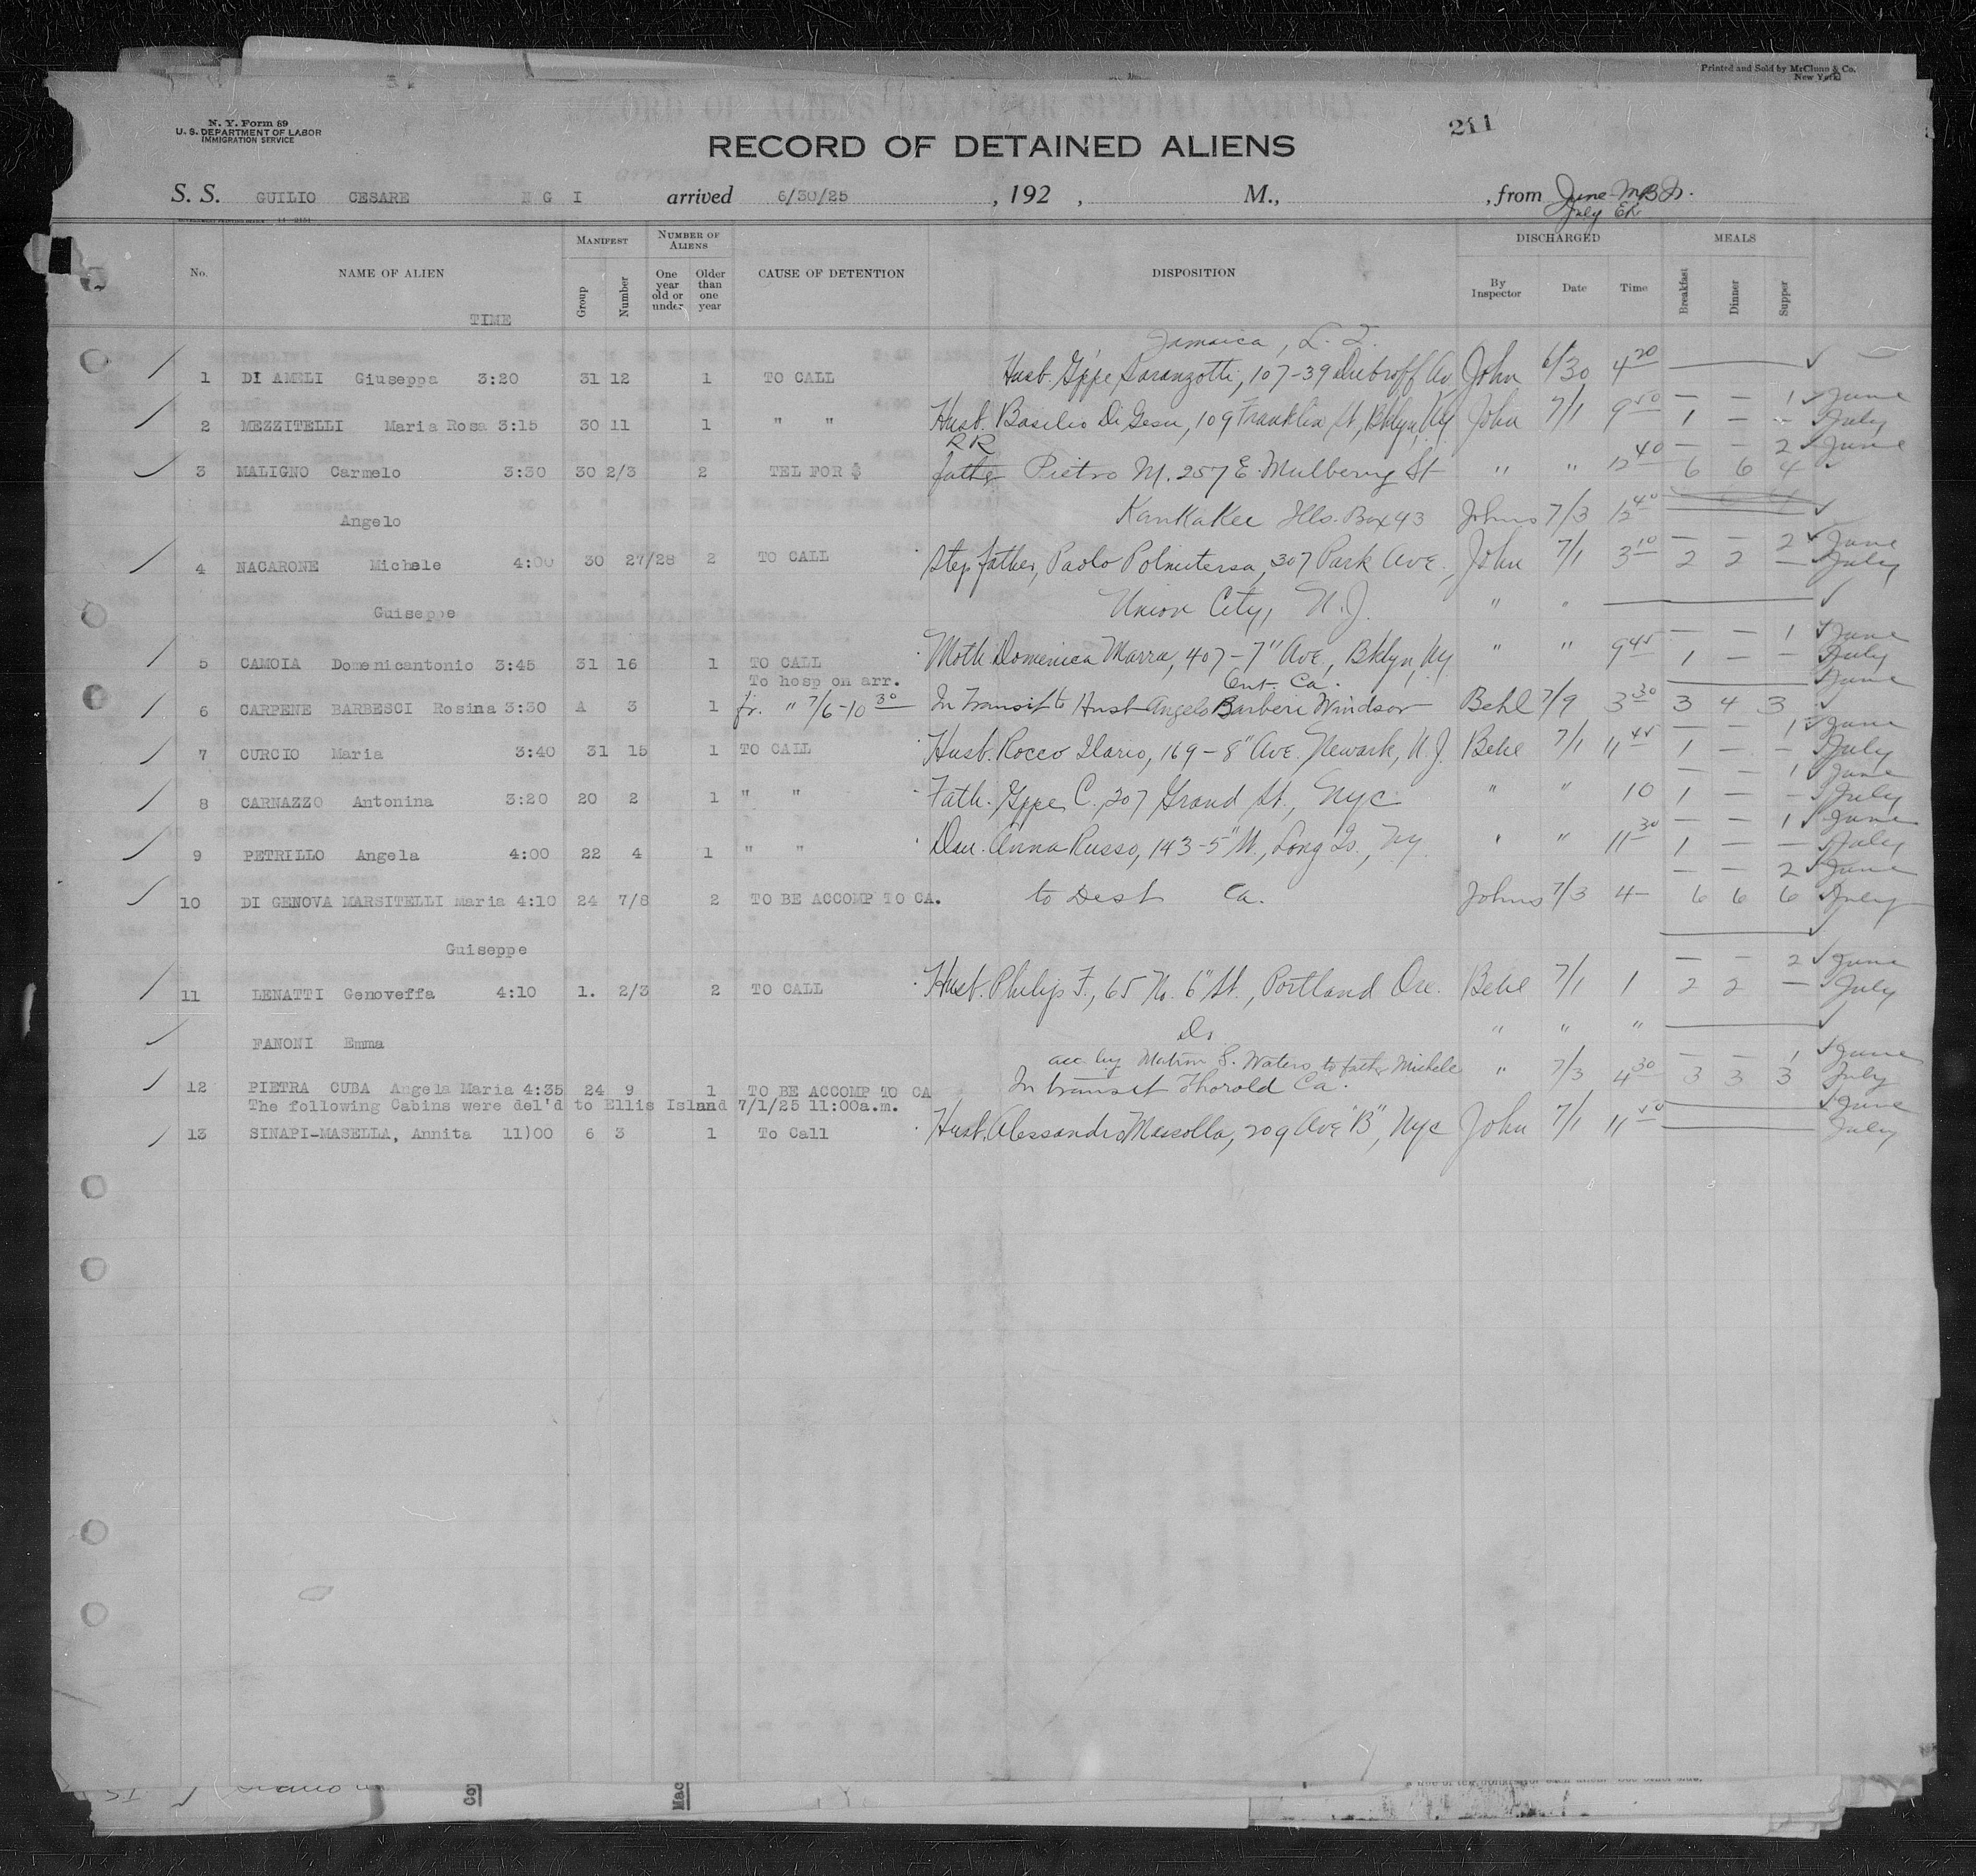 Printed and Sold by McClunn & Co.
New York
N. Y. Form 89
U. S. DEPARTMENT OF LABOR
IMMIGRATION SERVICE
211
RECORD OF DETAINED ALIENS
S. S. GUILIO CESARE N G I arrived 6/30/25 , 192 , M., , from June-MBJr.
July EK
No. NAME OF ALIEN TIME MANIFEST Group Number NUMBER OF ALIENS One year old or under Older than one year CAUSE OF DETENTION DISPOSITION DISCHARGED By Inspector Date Time MEALS Breakfast Dinner Supper
Jamaica, L. I.
1 DI AMELI Giuseppa 3:20 31 12 1 TO CALL Husb. Gppe Saranzotti, 107-39 Dubroff Av John 6/30 4 20
— — 1 June
2 MEZZITELLI Maria Rosa 3:15 30 11 1 " " Husb. Basilio Di Gesu, 109 Franklin St, Bklyn, Ny John 7/1 9 50 1 — - July
RR — — 2 June
3 MALIGNO Carmelo 3:30 30 2/3 2 TEL FOR $ father Pietro M. 257 E. Mulberry St " " 12 40 6 6 4
Angelo Kankakee Ills. Box 43 Johns 7/3 12 40
— — 2 June
4 NACARONE Michele 4:00 30 27/28 2 TO CALL Step father, Paolo Polmitersa, 307 Park Ave. John 7/1 3 10 2 2 — July
Guiseppe Union City, N.J. " "
— — 1 June
5 CAMOIA Domenicantonio 3:45 31 16 1 TO CALL Moth. Domenica Marra, 407-7" Ave, Bklyn, Ny " " 9 45 1 — — July
To hosp on arr. Ont. Ca. June
6 CARPENE BARBESCI Rosina 3:30 A 3 1 fr. " 7/6-10 30 In transit to Husb Angelo Barberi Windsor Behl 7/9 3 30 3 4 3
1 June
7 CURCIO Maria 3:40 31 15 1 TO CALL Husb. Rocco Ilario, 169-8" Ave. Newark, N.J. Behl 7/1 11 45 1 — — July
— — 1 June
8 CARNAZZO Antonina 3:20 20 2 1 " " Fath. Gppe C., 207 Grand St., Nyc " " 10 1 — - July
— — 1 June
9 PETRILLO Angela 4:00 22 4 1 " " Dau. Anna Russo, 143-5" St., Long Is., Ny. " " 11 30 1 — — July
— — 2 June
10 DI GENOVA MARSITELLI Maria 4:10 24 7/8 2 TO BE ACCOMP TO CA. to Dest Ca. Johns 7/3 4- 6 6 6 July
Guiseppe
— — 2 June
11 LENATTI Genoveffa 4:10 1. 2/3 2 TO CALL Husb. Philip F., 65 No. 6" St., Portland Ore. Behl 7/1 1 2 2 — July
FANONI Emma Do " " "
acc by Matron S. Waters to father Michele — — 1 June
12 PIETRA CUBA Angela Maria 4:35 24 9 1 TO BE ACCOMP TO CA In transit Thorold Ca. " 7/3 4 30 3 3 3 July
The following Cabins were del'd to Ellis Island 7/1/25 11:00a.m. June
13 SINAPI-MASELLA, Annita 11)00 6 3 1 To Call Husb. Alessandro Mascolla, 209 Ave "B", Nyc John 7/1 11 50 July